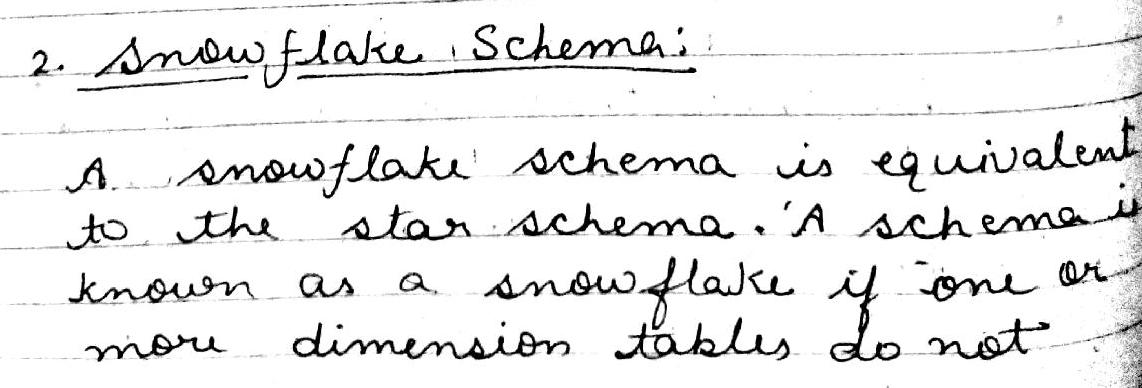 2. Snowflake Schema:
A snowflake schema is equivalent
to the star schema. A schema is
known as a snowflake if one or
more dimension tables do not